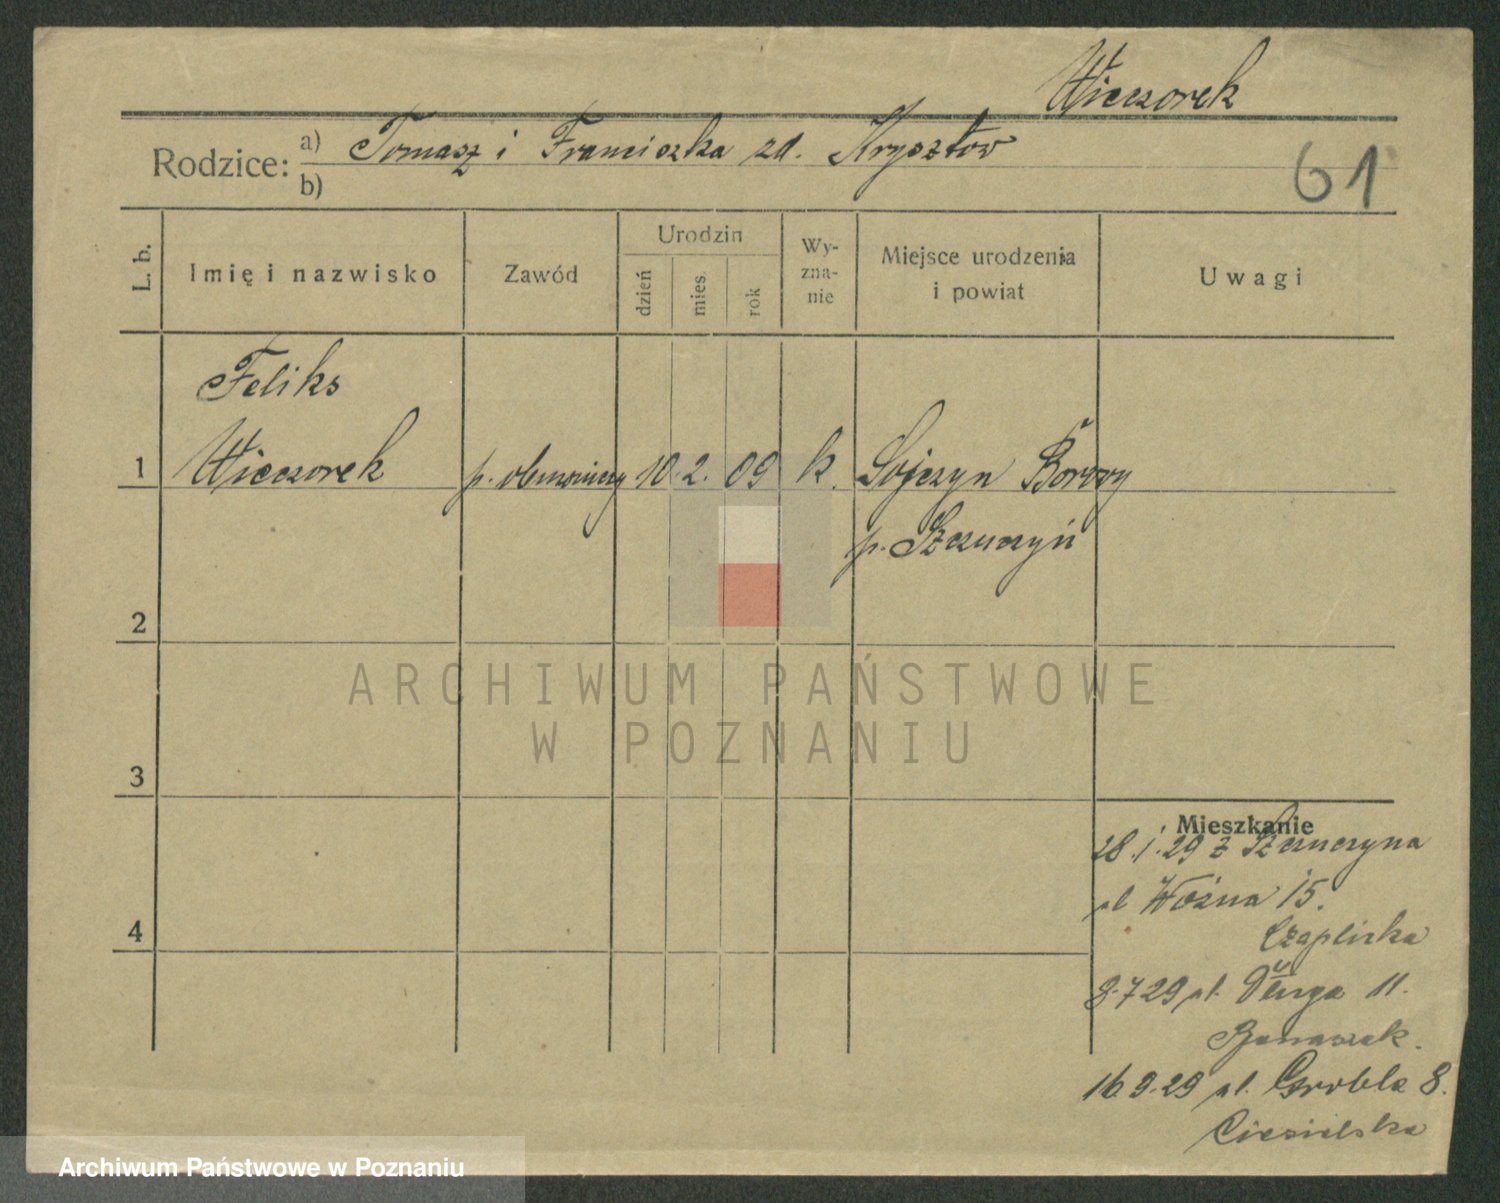 Wieczorek
Rodzice: a) Tomasz i Franciszka zd. Krysztow
b)
61
L. b.
Imię i nazwisko
Zawód
Urodzin
dzień
mies.
rok
Wy-
zna-
nie
Miejsce urodzenia
i powiat
Uwagi
Feliks
1 Wieczorek p. 10. 2. 09 k. Sojczyn Borowy
p. Szczuczyń
2
ARCHIWUM PAŃSTWOWE
W POZNANIU
3
Mieszkanie
28.1.29 z Szczuczyna
ul Woźna 15.
Czaplicka
4
8.7 29 ul. Długa 11.
Banaszak.
16.9.29 ul. Grobla 8.
Ciesielska
Archiwum Państwowe w Poznaniu